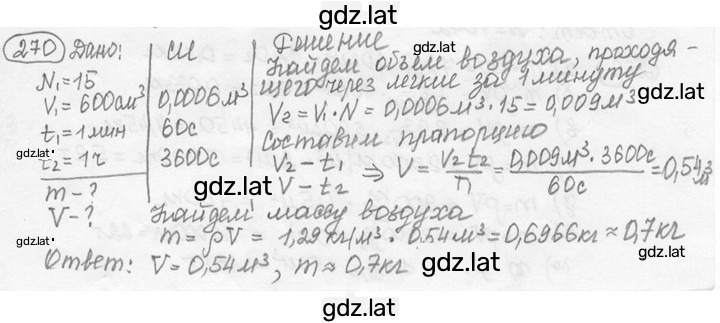 gdz.lat
270 Дано: СИ Решение
N₁=15
V₁=600см³ 0,0006м³
t₁=1мин 60с
t₂=1ч 3600с
m-?
V-?
Найдем объем воздуха, проходя-
щего через легкие за 1 минуту
V₂=V₁·N=0,0006м³·15=0,009м³
Составим прапорцию
V₂-t₁
V-t₂ ⇒ V=V₂t₂/t₁=0,009м³·3600с/60с=0,54м³
Найдем массу воздуха
m=ρV=1,29кг/м³·0,54м³=0,6966кг≈0,7кг
Ответ: V=0,54м³, m≈0,7кг
gdz.lat
gdz.lat
gdz.lat
gdz.lat
gdz.lat
gdz.lat
gdz.lat
gdz.lat
gdz.lat